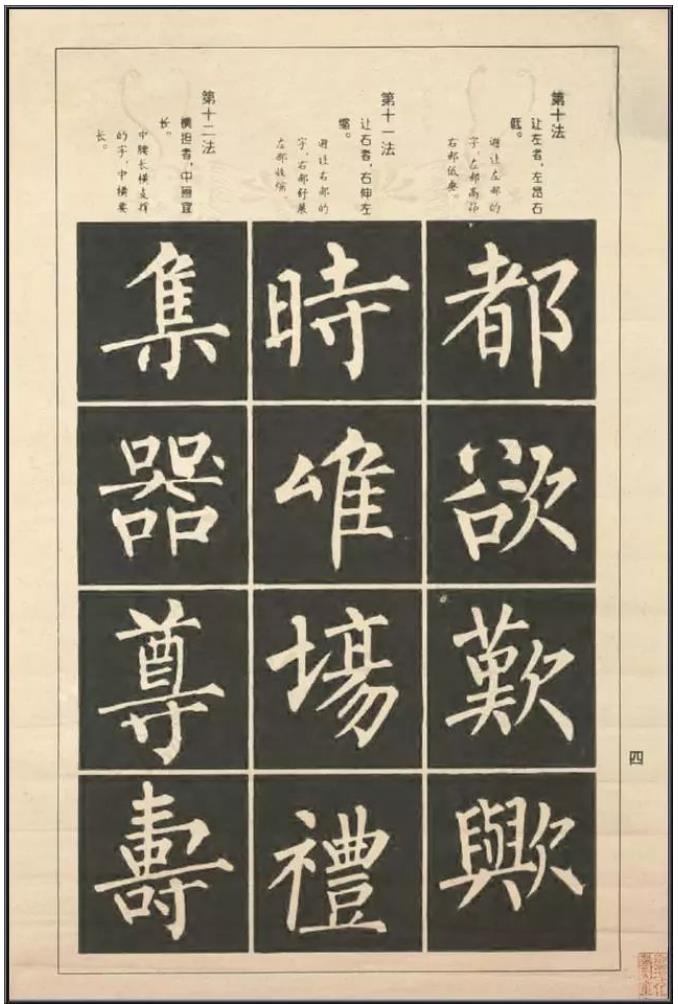 第十法
让左者，左昂右
低。
避让左部的
字，左部高昂
右部低垂。
都
欲
歎
歟
第十一法
让右者，右伸左
缩。
避让右部的
字，右部舒展
左部收缩。
時
唯
塲
禮
第十二法
横担者，中画宜
长。
中腰长横支撑
的字，中横要
长。
集
器
尊
壽
四